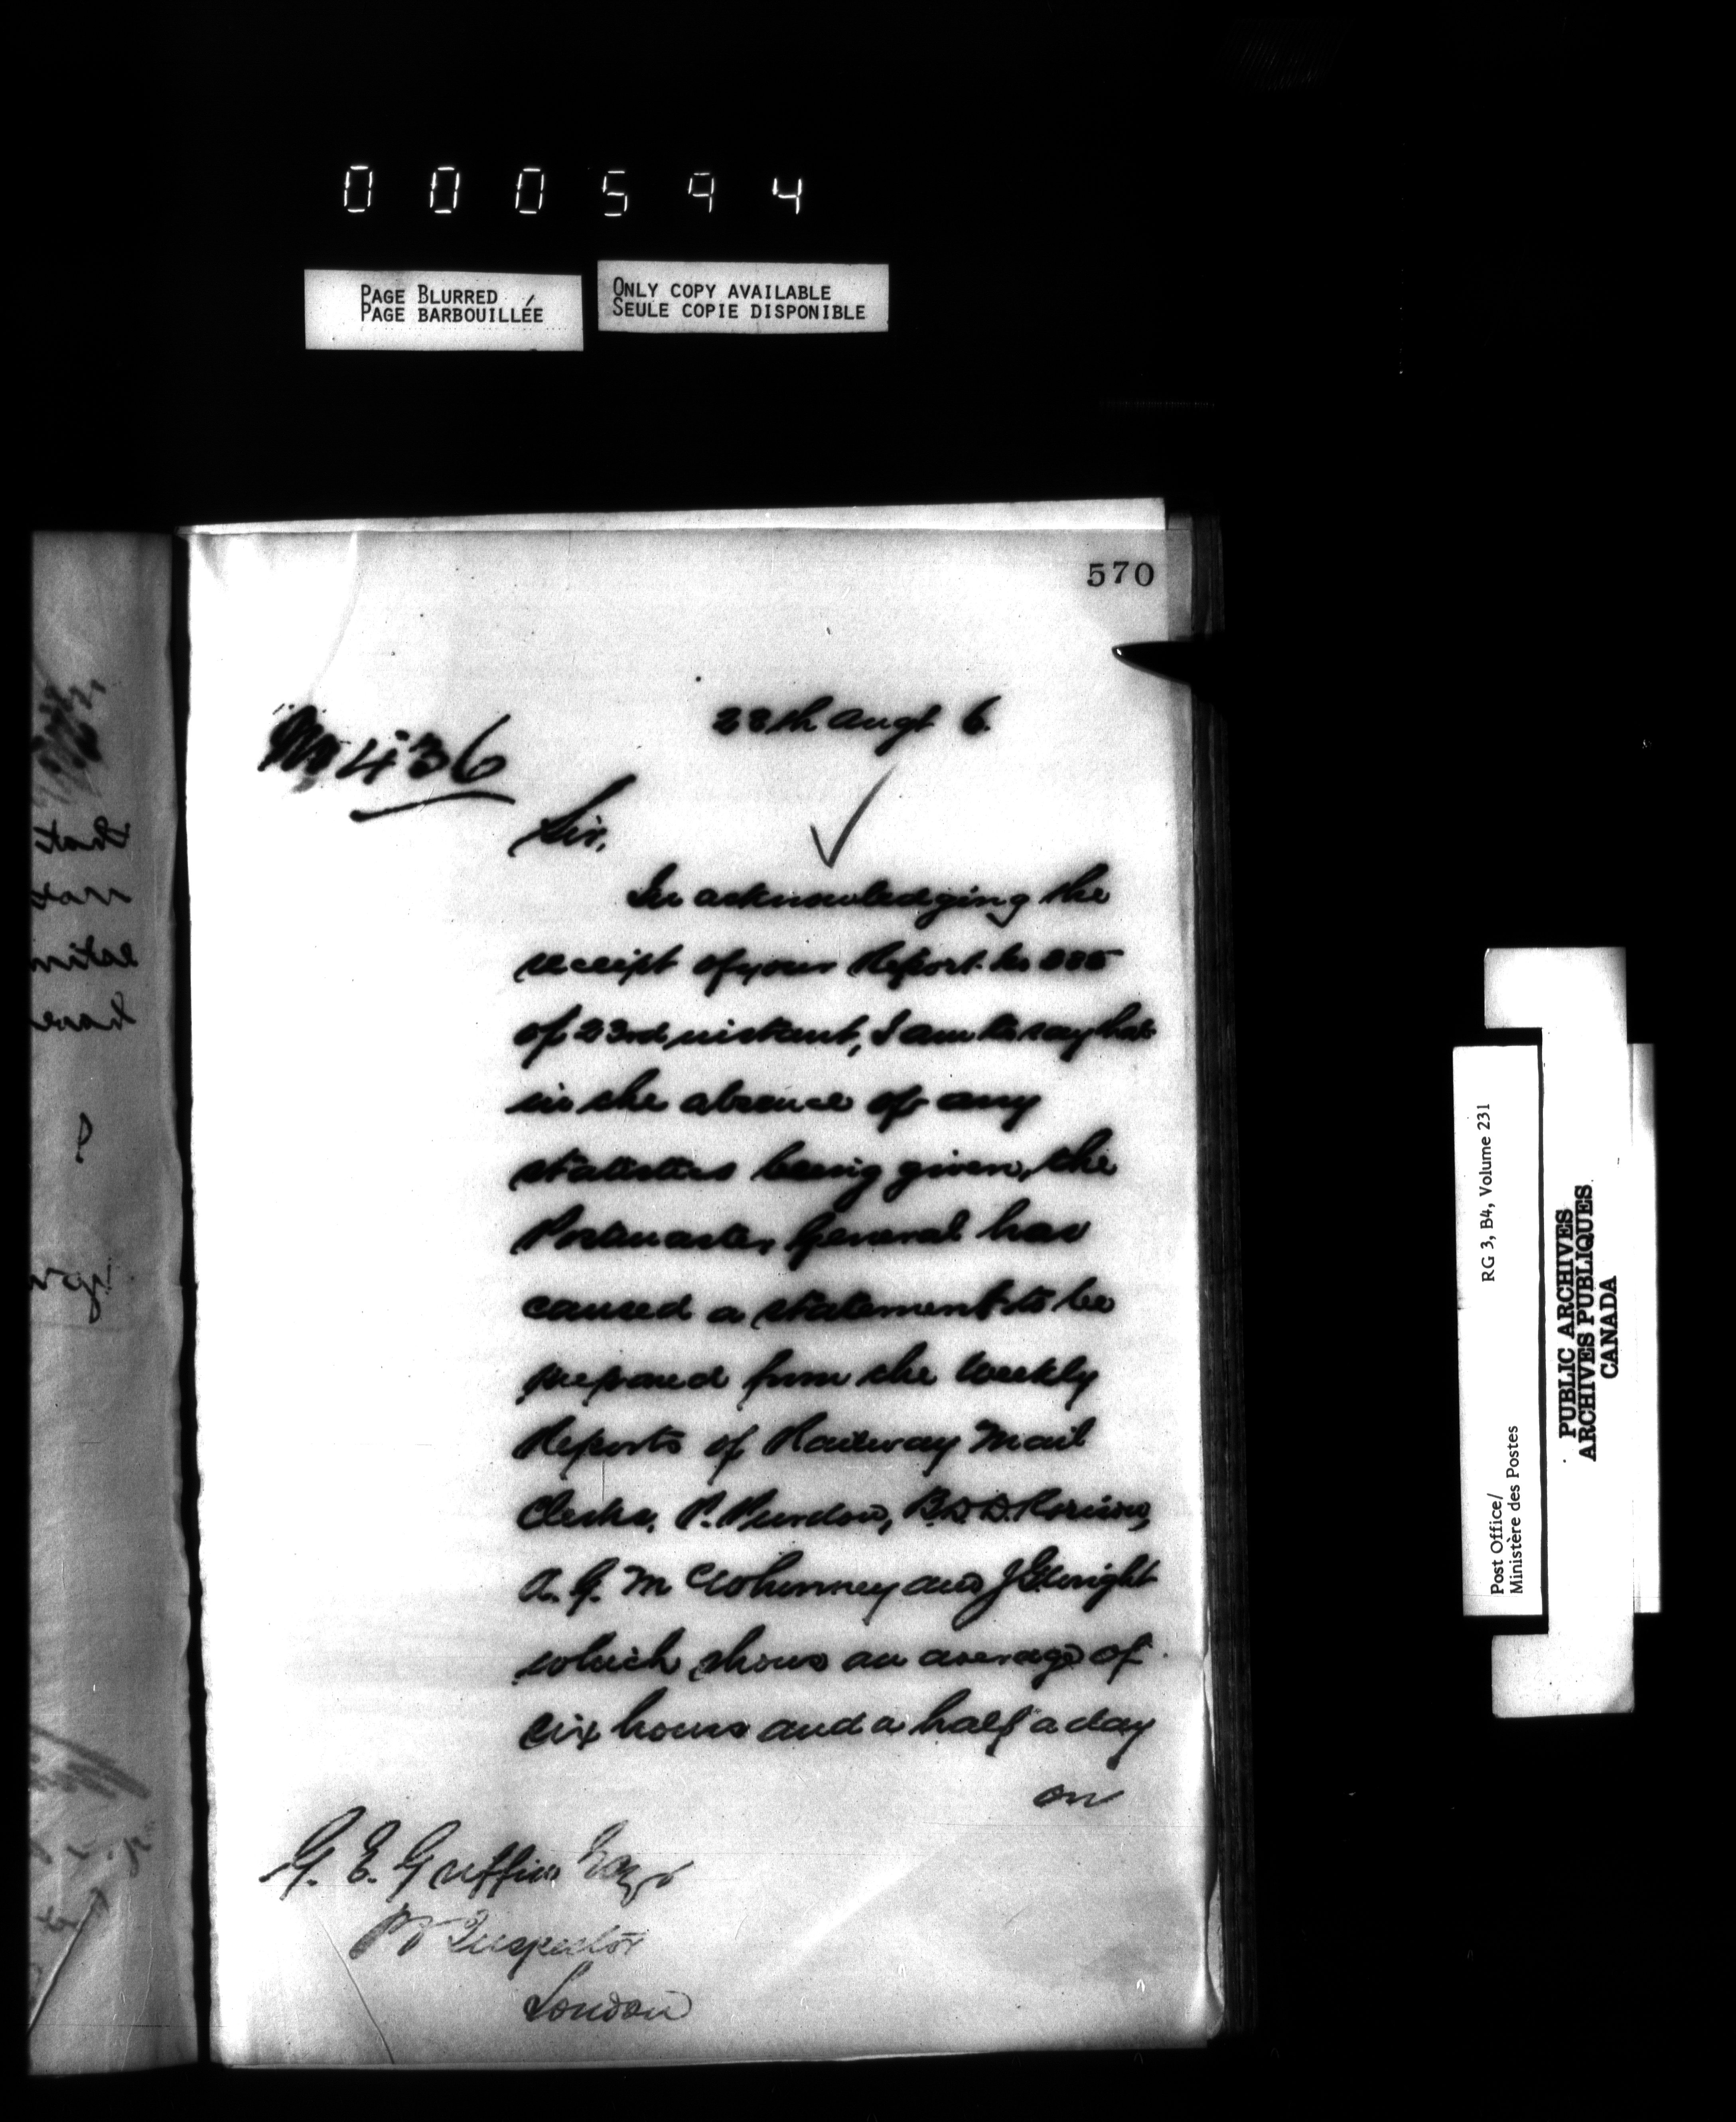 000594
PAGE BLURRED
PAGE BARBOUILLÉE
ONLY COPY AVAILABLE
SEULE COPIE DISPONIBLE
570
28th Augt 6.
436
Sir,
In acknowledging the
receipt of your Report No
of 23rd instant, I am to say that
in the absence of any
statistics being given, the
Postmaster General has
caused a statement to be
prepared from the Weekly
Reports of Railway Mail
Clerks, P. Purdom, B.D.D.
A. G. McWhinney and J G Wright
which shows an average of
six hours and a half a day
on
G. E. Griffin Esqr
PO Inspector
London
Post Office/
Ministère des Postes
RG 3, B4, Volume 231
PUBLIC ARCHIVES
ARCHIVES PUBLIQUES
CANADA